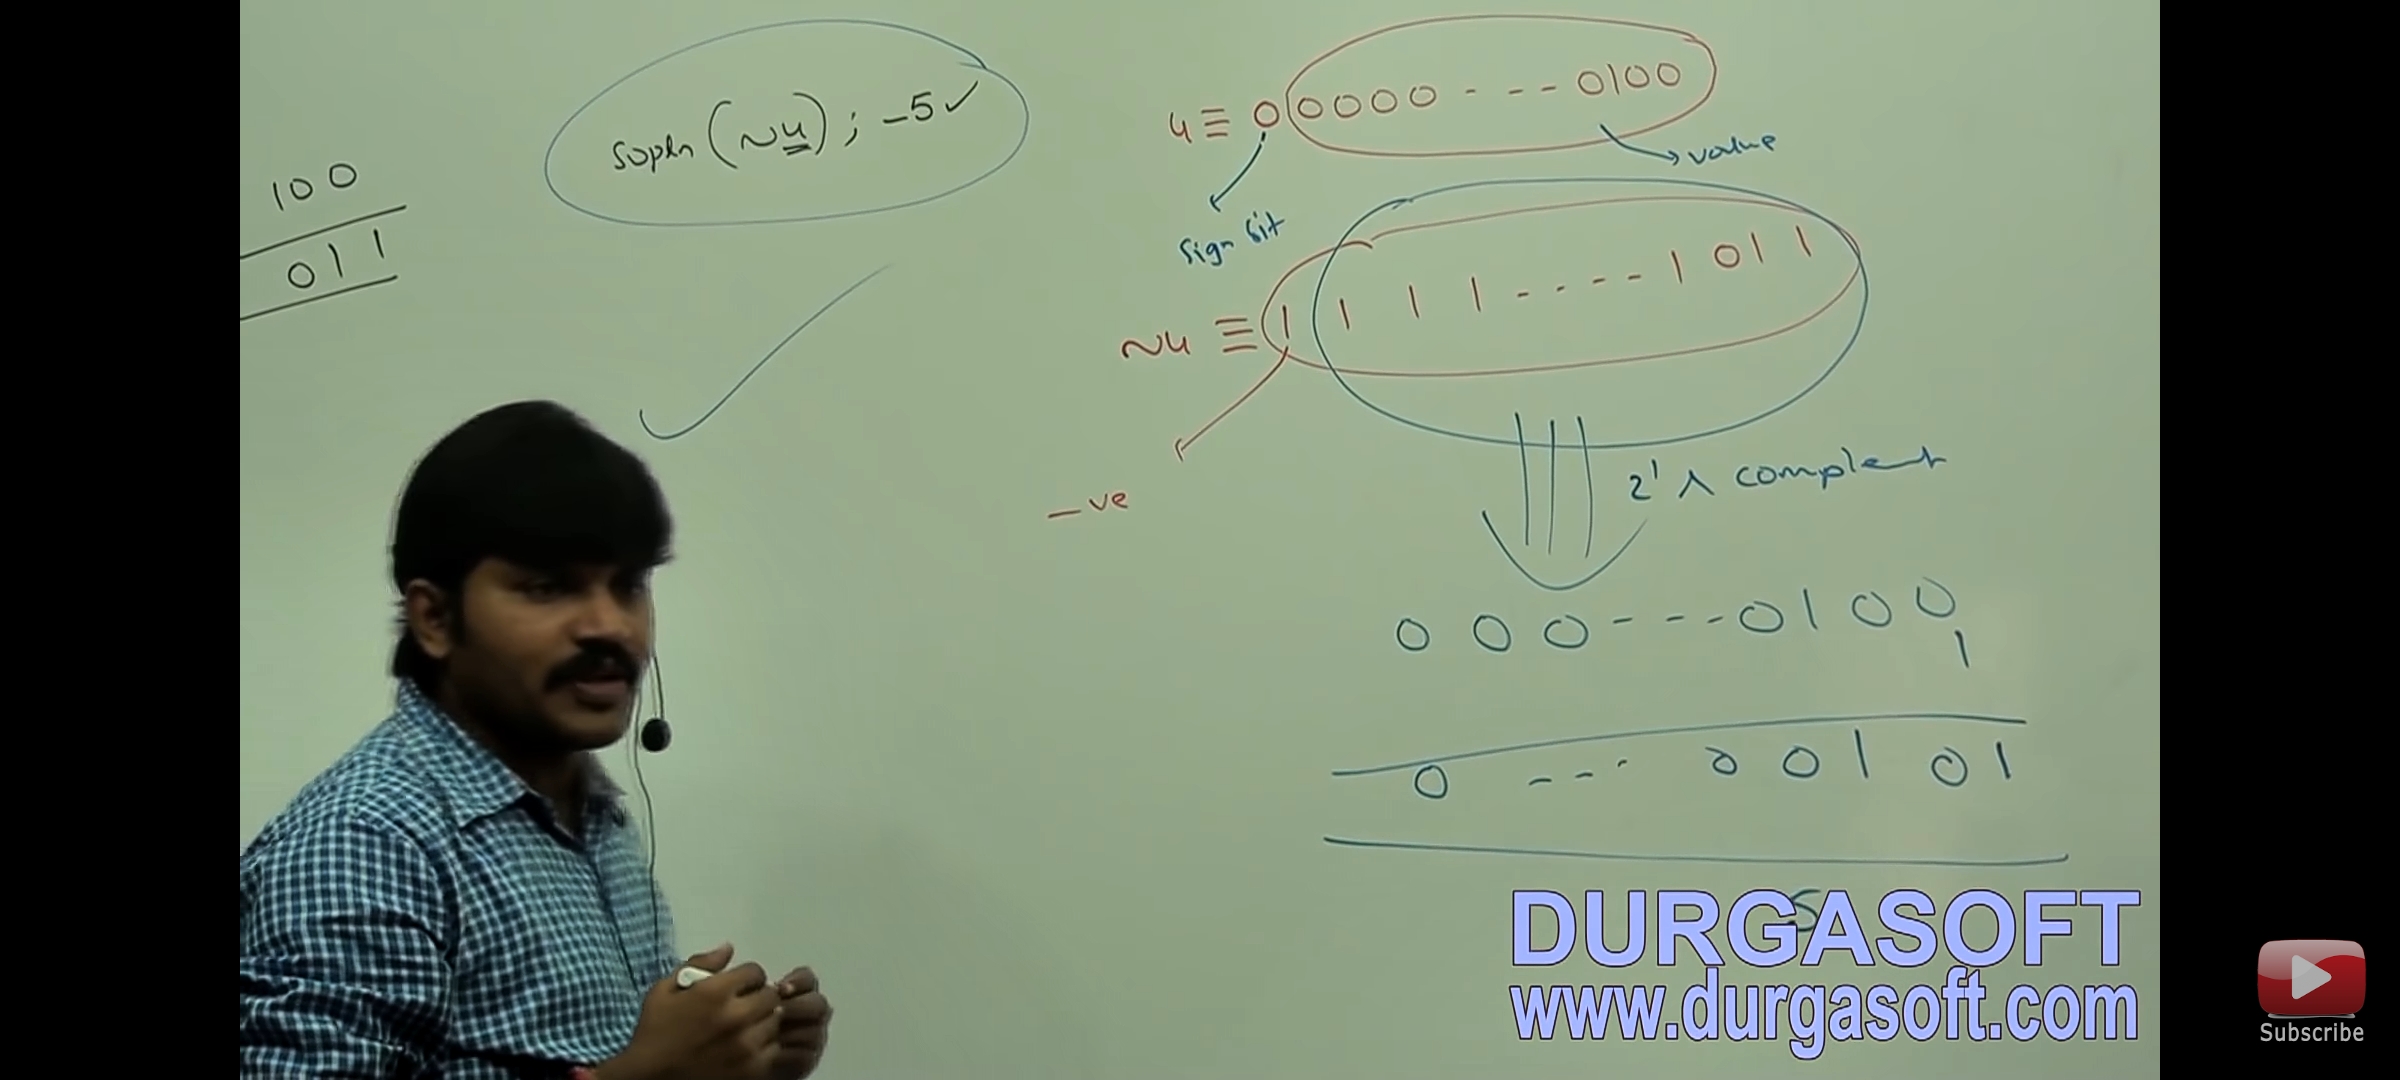 100
011
sopln (~4); -5 ✓
4 ≡ 0 0000 - - - 0100
value
sign bit
~4 ≡ 1 1 1 1 - - - - 1 0 1 1
-ve
2's complent
0 0 0 - - - 0 1 0 0
1
0 - - - 0 0 1 0 1
5
DURGASOFT
www.durgasoft.com
Subscribe